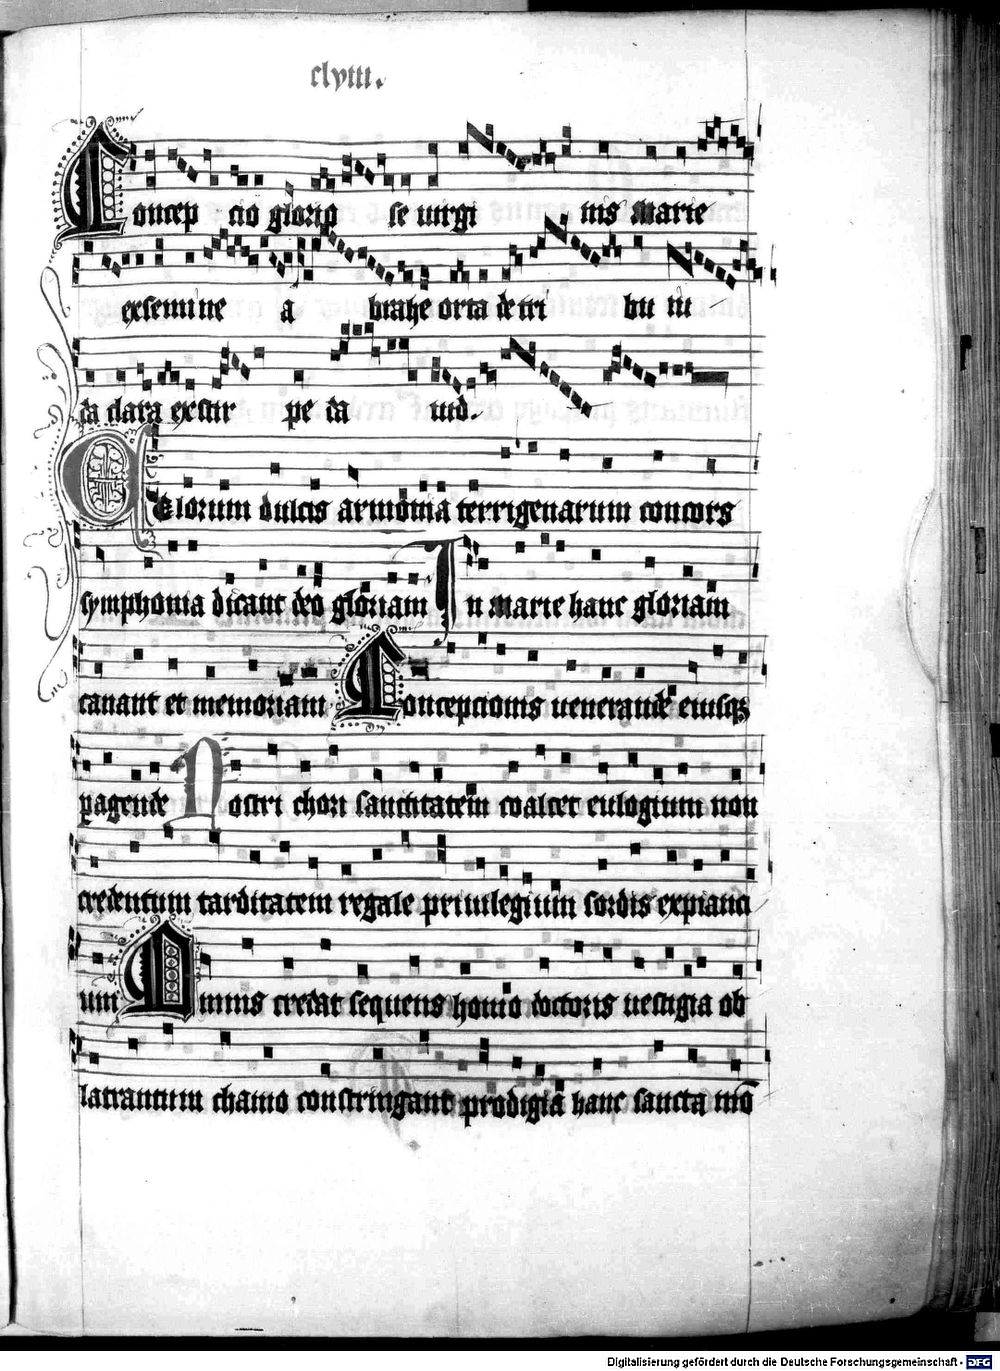 clviii.
Concep cio glorio se virgi nis Marie
exsemine a brahe orta de tri bu iu
da clara exstir pe da uid.
Celorum dulcis armonia terrigenarum concors
symphonia dicant deo gloriam In marie hanc gloriam
canant et memoriam Concepcionis venerande eiusqz
pagende Nostri chori sanctitatem coalcet eulogium non
credentum tarditatem regale priuilegium sordis expianti
um Omnis credat sequens homo doctoris vestigia ob
latrantum chamo constringant prodigia hanc sancta
Digitalisierung gefördert durch die Deutsche Forschungsgemeinschaft - DFG